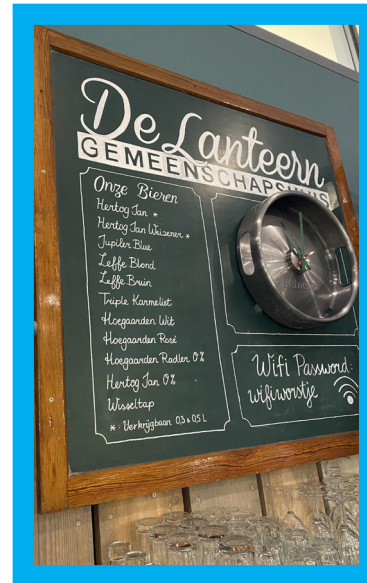 De Lanteern
GEMEENSCHAPSHUIS
Onze Bieren
Hertog Jan *
Hertog Jan Weizener *
Jupiler Blue
Leffe Blond
Leffe Bruin
Triple Karmeliet
Hoegaarden Wit
Hoegaarden Rosé
Hoegaarden Radler 0%
Hertog Jan 0%
Wisseltap
* : Verkrijgbaar 0,3 & 0,5 L
Wifi Password:
wifiworstje